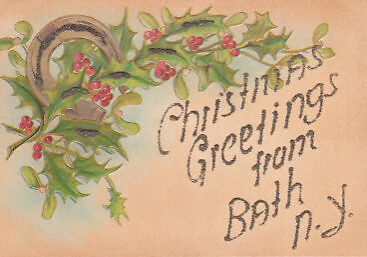 Christmas
Greetings
from
Bath
N.Y.